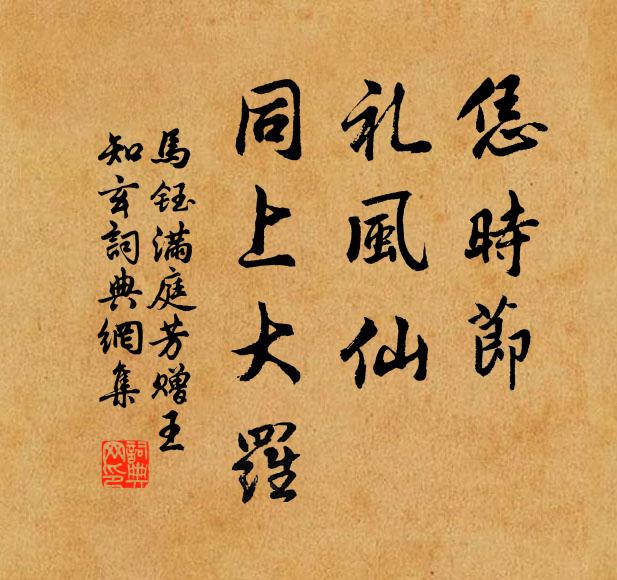 恁時節
礼風仙
同上大羅
馬鈺滿庭芳贈王
知玄詞典網集
詞典
网印